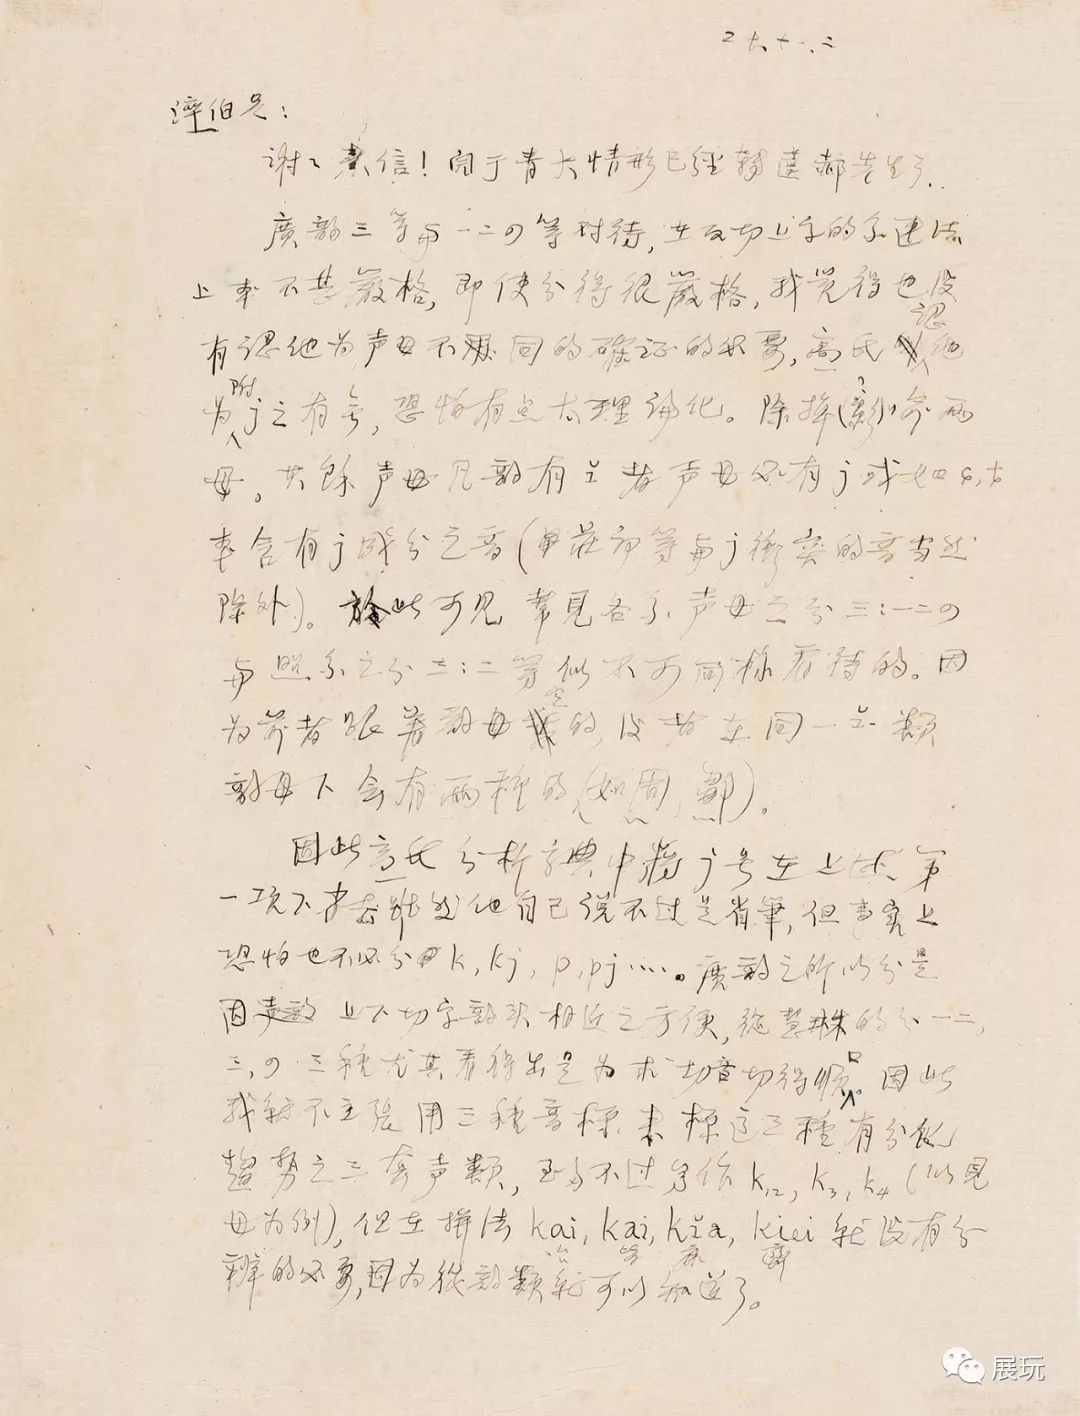 二六、十一、二
滓伯兄：
谢々来信！関于青大情形已經轉達郝先生了．
廣韵三等与一二四等对待，在反切上字的系連法
上本不甚嚴格，即使分得很嚴格，我覚得也没
有認他为声母不同的確证的必要，高氏認他
为附j之有無，恐怕有点太理論化。除掉(影)喻两
母，其餘声母凡韵有i者声母必有j或如ɕ,
本含有j成分之音(莊初等与j衝突的音当然
除外)。於此可見幫見各系声母之分三:一二四
与照系之分三:二等似不可同樣看待的。因
为前者跟着韵母定的，後者在同一i类
韵母下会有两種的(如周，鄒)。
因此高氏分析字典中將j号在上述第
一項下拿去雖然他自己说不过是省筆，但事实上
恐怕也不必分k, kj, p, pj……。廣韵之所以分是
因 上下切字韵头相近之方便，從慧琳的分一二，
三，四三種尤其看得出是为求切音切得順口。因此
我就不主張用三種音标来标這三種有分化
趨势之三套声類，至多不过写作k12, k3, k4(以見
母为例)，但在拼法kai, kai, kĭa, kiei就没有分
辨的必要，因为從韵類就可以知道了。
展玩